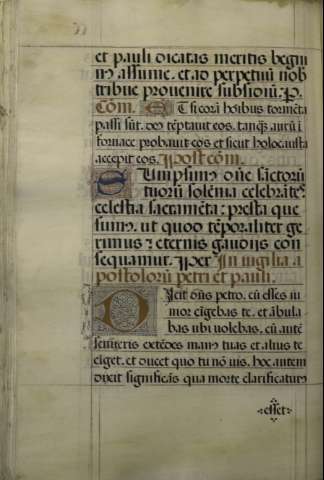 et pauli dicatas meritis benigni
m assume. et ad perpetuū nob
tribue prouenire subsidiū: P.
Cōm. Et si corā hoībus tormēta
passi sūt. deꝰ tēptauit eos. tanq̄ aurū ī
fornace probauit eos et sicut holocausta
accepit eos. Post cōm.
Sumpsimꝰ dn̄e sāctorū
tuorū solēnia celebrātes
celestia sacramēta: presta que
sumꝰ. ut quod tēporaliter ge
rimus: eternis gaudijs con
sequamur. Per. In uigilia a
postolorū petri et pauli.
Dicit dn̄s petro. cū esses iu
nior cīgebas te. et ābula
bas ubi uolebas. cū autē
senueris extēdes manꝰ tuas et alius te
cīget. et ducet quo tu nō uis. hoc autem
dixit significās qua morte clarificaturꝰ
esset